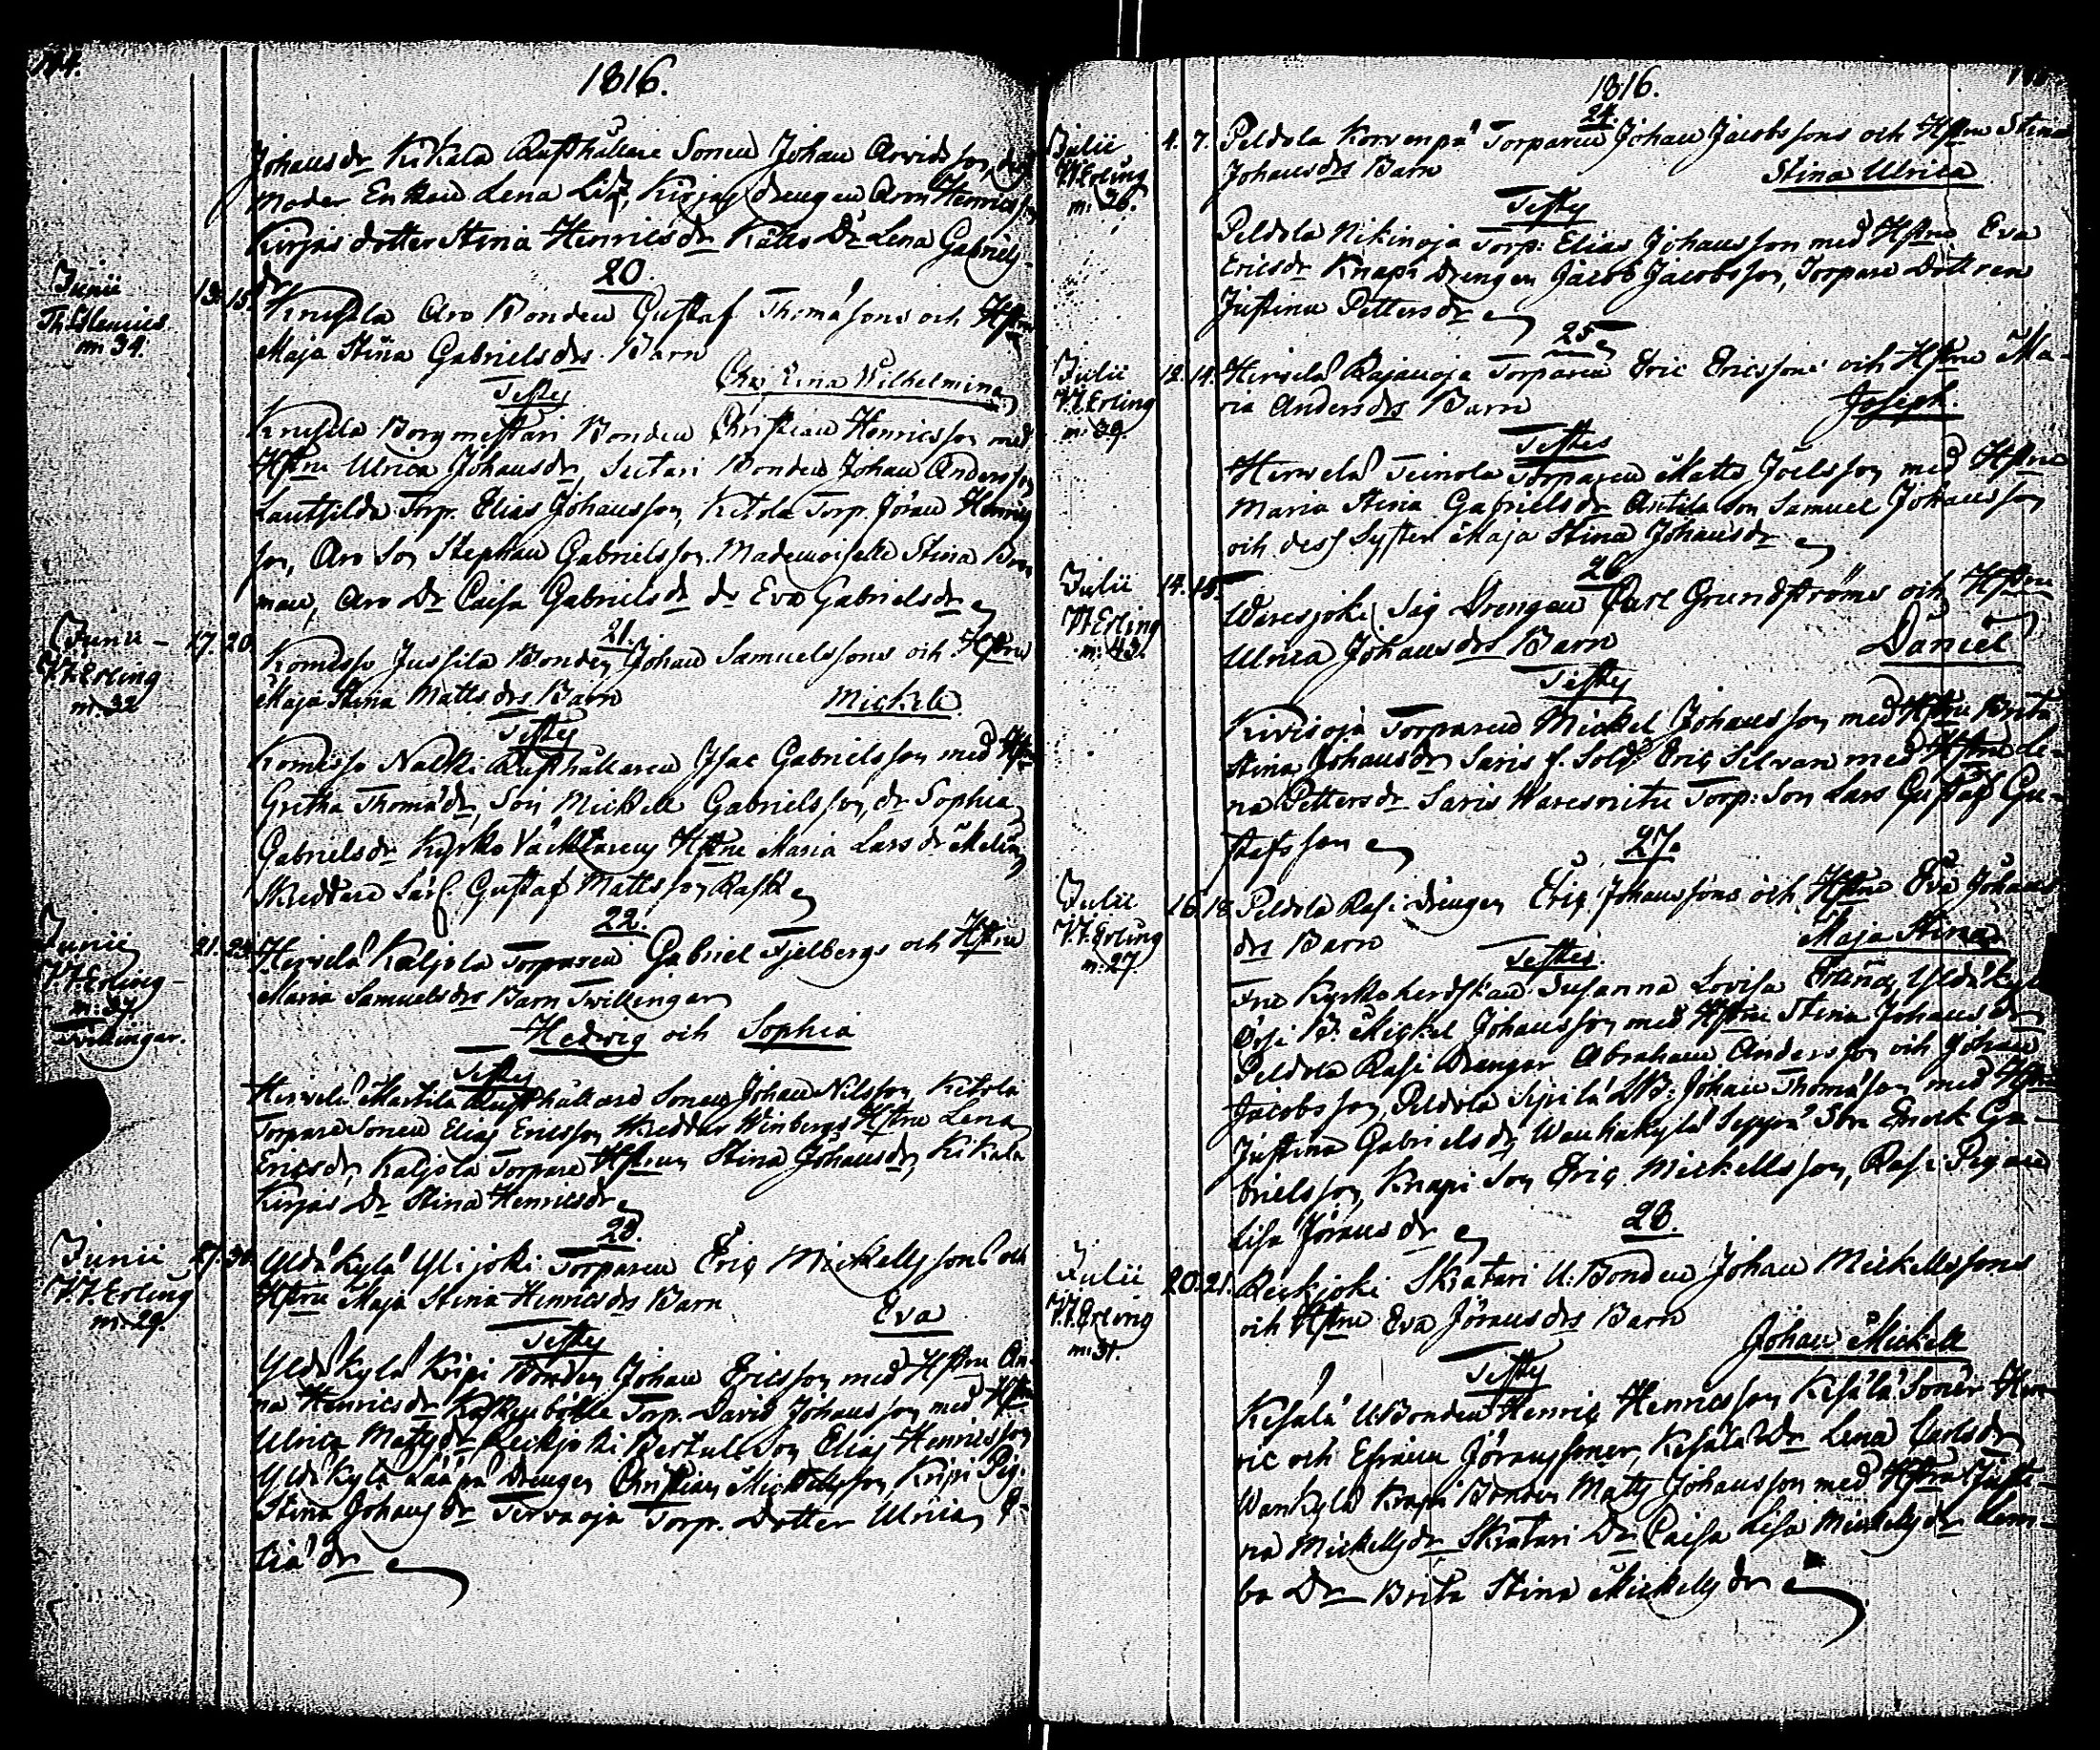 1816.
Johansdr Kikala Rusthållare Sonen Johan Arvidsson, dess
Moder Enkan Lena Lis, Kirjas drengen Aron Henricsson
Kirjas dotter Stina Henricsdr Kåtts Dr Lena Gabriels-
dr
20.
Junii 13. 15. Krusila Aro Bonden Gustaf Thomæsons och Hstru
Th: Idlenius Maja Stina Gabrielsdrs Barn
m 34. Christina Wilhelmina
Testes
Krusila Borgmestari Bonden Christian Henricsson med
Hstru Ulrica Johansdr, Suutari Bonden Johan Andersson
Lautsilda Torp. Elias Johansson, Kitola Torp. Jöran Henrics
son, Aro Son Stephan Gabrielsson. Mademoiselle Stina
man, Aro Dr Caisa Gabrielsdr dr Eva Gabrielsdr
21.
Junii 17. 20. Komisso Jussila Bonden Johan Samuelssons och Hstru
V.V. Erling Maja Stina Mattsdrs Barn Mickell
m. 32
Testes
Komisso Nalki Rusthållaren Isac Gabrielsson med Hstru
Gretha Thomædr, Son Mickell Gabrielsson, dr Sophia
Gabrielsdr Kyrko Väcktarens Hstru Maria Larsdr Melin,
Skreddare Lärl. Gustaf Mattsson Rask
22.
Junii 21. 23. Hirvelä Kaljola Torparen Gabriel Fjelbergs och Hstru
V.V. Erling Maria Samuelsdrs Barn Twillingar
m. 34
Twillingar. Hedvig och Sophia
Testes
Hirvelä Martila Rusthållare Sonen Johan Nilsson, Kitola
Torpare Sonen Elias Ericsson Skreddar Winbergs Hstru Lena
Ericsdr, Kaljola Torpare Hstrun Stina Johansdr, Kikala
Kirjas Dr Stina Henricsdr
23.
Junii 27. 30. Yldäkylä Ylijoki Torparen Eric Mickellssons och
V.V. Erling Hstru Maja Stina Henricsdrs Barn
m. 29. Eva
Testes
Yldäkylä Kripi Bonden Johan Ericsson med Hstru An-
na Henricsdr Koskenbölle Torp. David Johansson med Hstru
Ulrica Mattsdr Reckjoki Bertull Son Elias Henricsson
Yldäkylä Lääpä Drengen Christian Mickellsson, Kripi Pig:
Stina Johansdr Tervaoja Torp. Dotter Ulrica, E-
liædr
1816.
24.
Julii 4. 7. Peldola Korvenpä Torparen Johan Jacobssons och Hstru Stina
V.V. Erling Johansdrs Barn Stina Ulrica
m: 26.
Testes
Peldola Nikinoja Torp: Elias Johansson med Hstru Eva
Ericsdr Knapi Drengen Jacob Jacobsson, Torpare Dottren
Justina Pettersdr
25
Julii 12. 14. Hirvelä Rajanoja Torparen Eric Ericssons och Hstru Ma-
V.V. Erling ria Andersdrs Barn Joseph.
m: 39.
Testes
Hirvelä Teinola Torparen Matts Joelsson med Hstru
Maria Stina Gabrielsdr Antila Son Samuel Johansson
och dess Syster Maja Stina Johansdr
26
Julii 14. 15. Waresjoki Säg Drengen Carl Grundströms och Hstru
V.V. Erling Ulrica Johansdrs Barn Daniel
m. 43.
Testes
Kivisoja Torparen Mickel Johansson med Hstru Brita
Stina Johansdr, Saris f. Sold: Eric Silvan med Hstru Le-
na Pettersdr Saris Waresnitu Torp: Son Lars Gustaf Gu-
stafsson
27.
Julii 16. 18. Peldola Rasi drengen Eric Johanssons och Hstru Eva Johans-
V.V. Erling drs Barn Maja Stina
m: 27.
Testes.
Fru Kyrkoherdskan Susanna Lovisa Yldäkylä
B. Mickel Johansson med Hstru Stina Johansdr
Peldola Rasi Drengar Abraham Andersson och Johan
Jacobsson, Peldola Sipilä LB: Johan Thomæson med Hstru
Justina Gabrielsdr, Wanhakylä Seppä Son Enock Ga-
brielsson, Knapi Son Eric Mickellsson, Rasi Pigan
Lisa Jöransdr
28.
Julii 20. 21. Reckjoki Skratari U: Bonden Johan Mickellssons
V.V. Erling och Hstru Eva Jöransdrs Barn
m: 31. Johan Mickell
Testes
Kesälä U:Bonden Henric Henricsson Kesälä Söner Hen-
ric och Efraim Jöranssöner, Kesälä Dr Lena Carlsdr
Wankylä Krapi Bonden Matts Johansson med Hstru Justi-
na Mickellsdr Skratari Dr Caisa Lisa Mickellsdr Lem-
bo Dr Brita Stina Mickellsdr